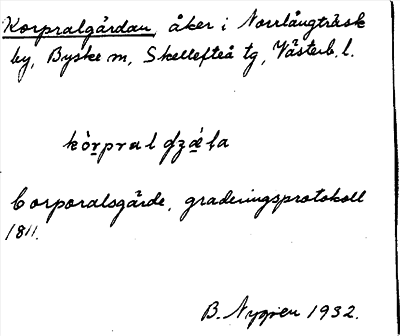 Korpralgärdan, åker i Norrlångträsk
by, Byske sn, Skellefteå tg, Västerb. l.
Corporalsgärde, graderingsprotokoll
1811.
B. Nygren 1932.